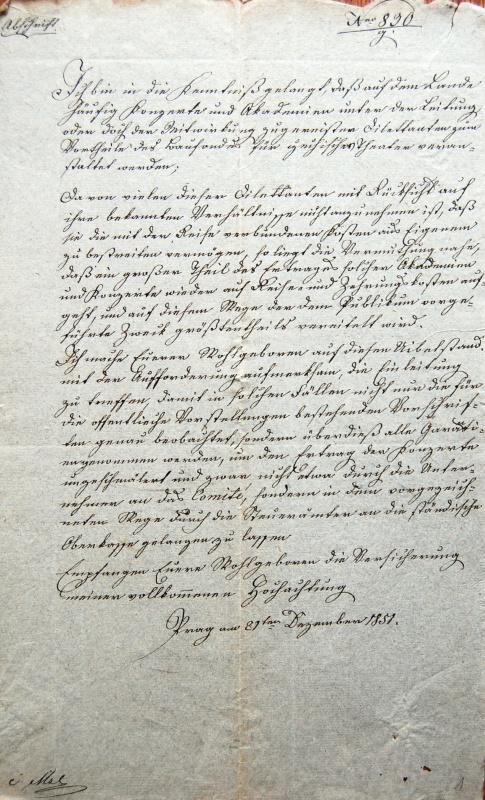 Abschrift.
Nro 890
g.
Ich bin in die Kenntniß gelangt, daß auf dem Lande
häufig Konzerte und Akademien unter der Leitung,
oder doch der Mitwirkung zugereister Dilettanten zum
Vortheile des Baufondes für czechisches Theater veran-
staltet werden;
Da von vielen dieser Dilettanten mit Rücksicht auf
ihre bekannten Verhältnisse nicht anzunehmen ist, daß
sie die mit der Reise verbundenen Kosten aus eigenem
zu bestreiten vermögen, so liegt die Vermuthung nahe,
daß ein großer Theil des Ertrages solcher Akademien
und Konzerte wieder auf Reise- und Zehrungskosten auf-
geht, und auf diesem Wege der dem Publikum vorge-
führte Zweck größtentheils vereitelt wird.
Ich mache Euerer Wohlgeboren auf diesen Uibelstand
mit der Aufforderung aufmerksam, die Einleitung
zu treffen, damit in solchen Fällen nicht nur die für
die öffentliche Vorstellungen bestehenden Vorschrif-
ten genau beobachtet, sondern überdieß alle Garanti-
en genommen werden, um den Ertrag der Konzerte
ungeschmälert und zwar nicht etwa durch die Unter-
nehmer an das Comité, sondern in dem vorgezeich-
neten Wege durch die Steuerämter an die ständische
Oberkasse gelangen zu lassen
Empfangen Euere Wohlgeboren die Versicherung
meiner vollkommenen Hochachtung
Prag am 31ten Dezember 1851.